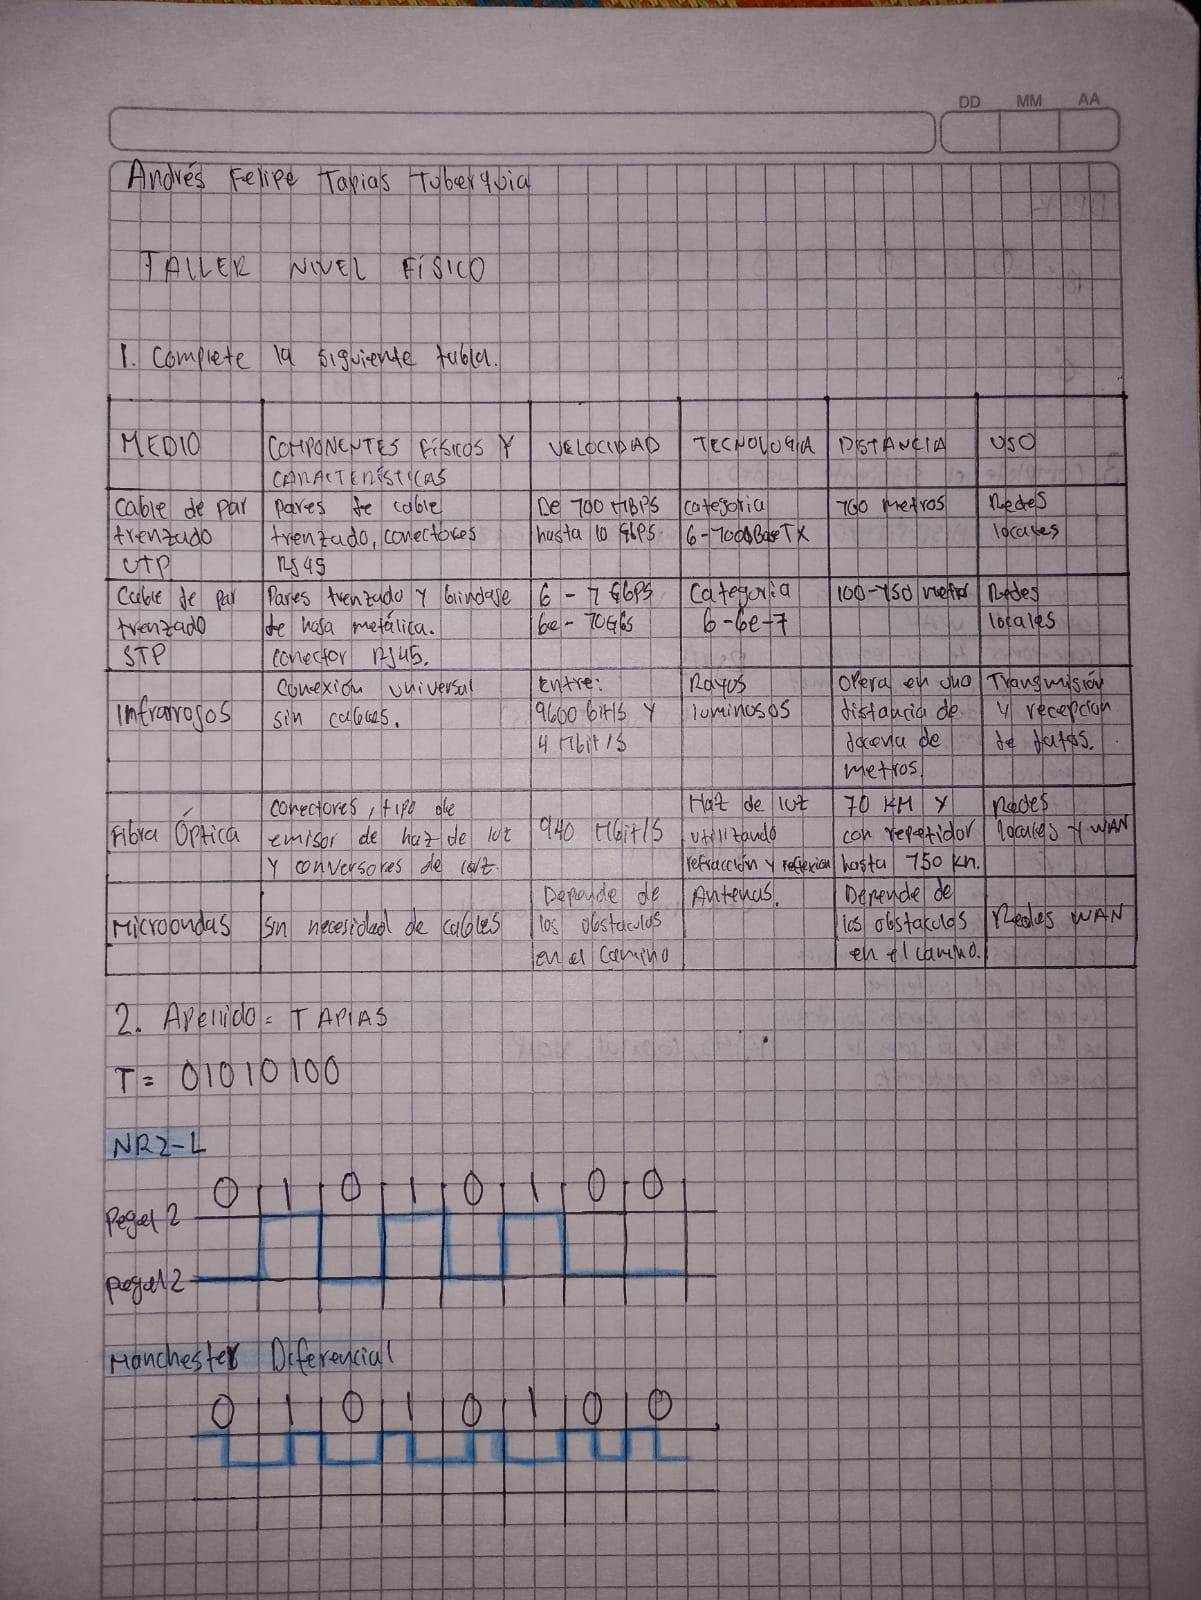 DD MM AA
Andrés Felipe Tapias Tuberquia
TALLER NIVEL FÍSICO
1. Complete la siguiente tabla.
MEDIO
COMPONENTES FÍSICOS Y
CARACTERÍSTICAS
VELOCIDAD
TECNOLOGIA
DISTANCIA
USO
Cable de par
trenzado
UTP
Pares de cable
trenzado, conectores
RJ45
De 100 MBPS
hasta 10 GBPS
categoria
6-1000BaseTX
100 metros
Redes
locales
Cable de par
trenzado
STP
Pares trenzado y blindaje
de hoja metálica.
conector RJ45.
6 - 1 GBPS
6e - 10Gbs
Categoria
6-6e-7
100-150 metros
Redes
locales
Infrarrojos
Conexión universal
sin cables.
Entre:
9600 bit/s y
4 Mbit/s
Rayos
luminosos
Opera en una
distancia de
docena de
metros
Transmisión
y recepción
de datos.
Fibra Óptica
conectores, tipo de
emisor de haz de luz
y conversores de luz.
940 Mbit/s
Haz de luz
utilizando
refracción y reflexion
70 KM y
con repetidor
hasta 150 km.
Redes
locales y WAN
Microondas
Sin necesidad de cables
Depende de
los obstaculos
en el camino
Antenas.
Depende de
los obstaculos
en el camino.
Redes WAN
2. Apellido = TAPIAS
T = 01010100
NRZ-L
0 1 0 1 0 1 0 0
Pegel 2
pegel 2
Manchester Diferencial
0 1 0 1 0 1 0 0